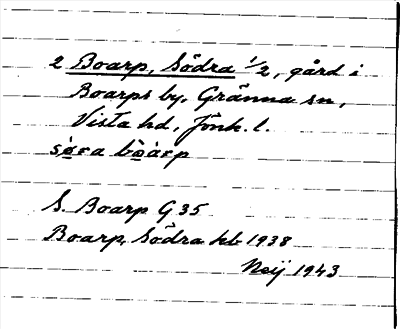 2 Boarp, Södra 1/2, gård i
Boarps by, Gränna sn,
Vista hd, Jönk. l.
sø̀ra bòarp
S. Boarp G 35
Boarp, Södra kb 1938
1943